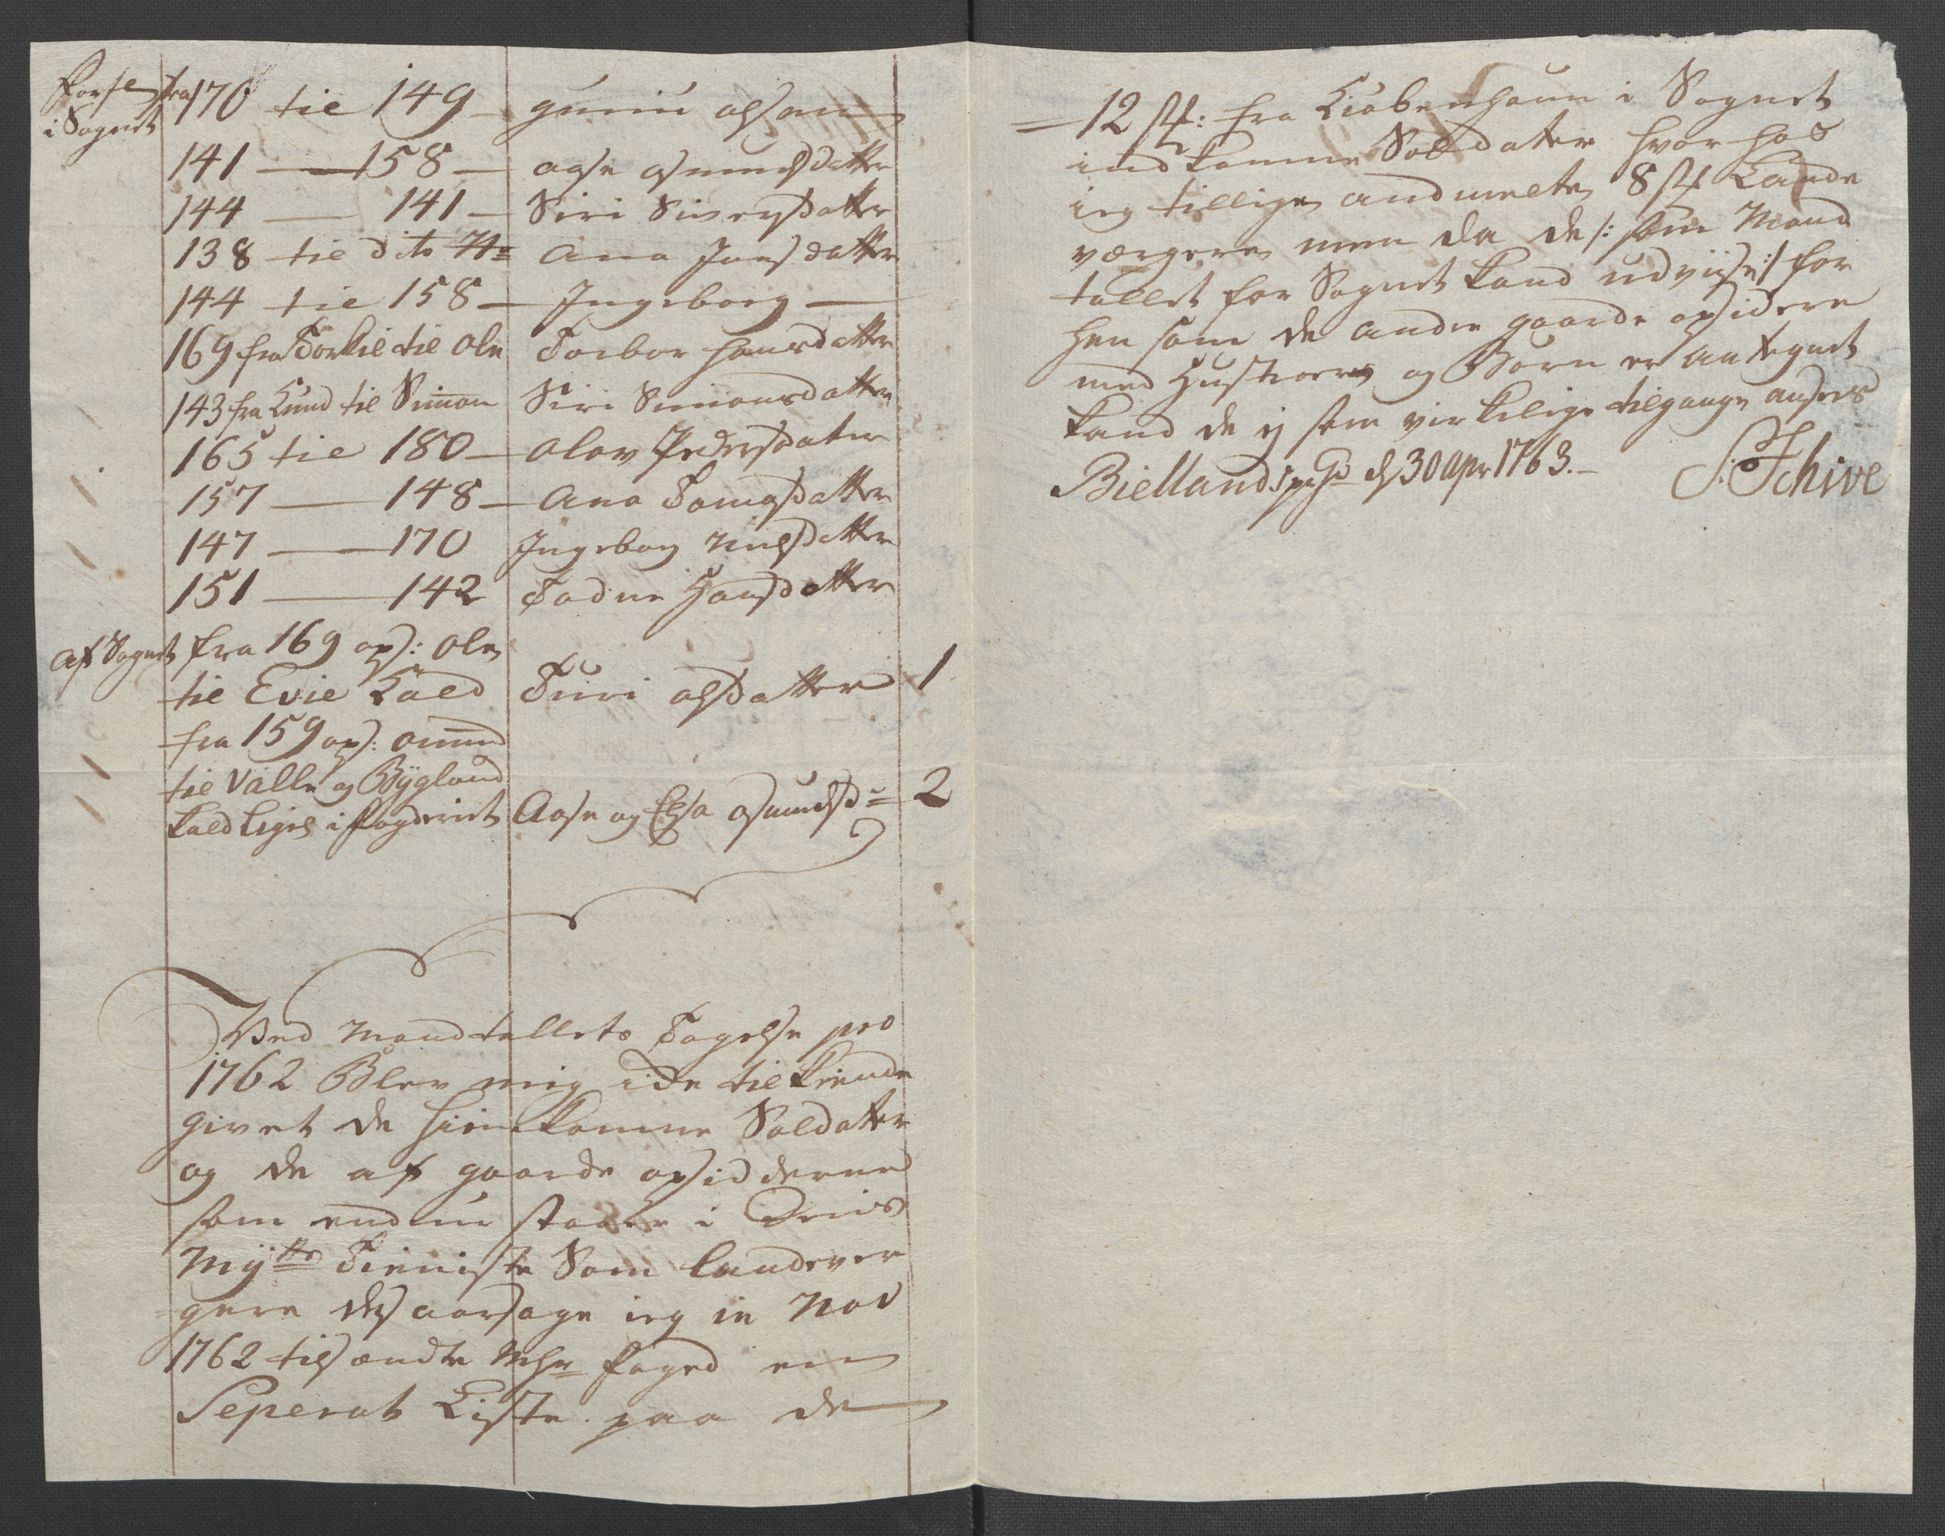 i Sognet
fra 170 til 149 - guri
141 — 158 — aase osmundsdatter
144 — 141 — Siri Siversdatter
138 til dito No Ana Jansdatter
144 til 158 — Ingeborg —
169 fra Torkil til Ole Torbor hansdatter
143 fra Lund til Simon Siri Simonsdatter
165 til 180 — olav Pedersdater
157 — 148 — Ana Tomasdatter
147 — 170 Ingebor Nilsdatter
151 — 142 Todne Hansdatter
af Sognet fra 169 ops: Ole
til Evie Kald Turi olsdatter 1
fra 159 ops: omund
til Valle og Bÿgland
kald ligel i fogderiet Aase og Elsa osmundsd= 2
Ved Mandtallets Tagelse pro
1762 Blev mig icke tilkiende
givet de hiemkomne Soldatter
og de af gaarde opsidderne
som endnu staaer i Deris
Mÿtts Tieniste Som landever
gere desaarsage ieg in Nov
1762 tilsændte Mhr foged en
Seperat Liste paa de
12 st: fra Kiøbenhaun i Sognet
indkomne Soldater hvor hos
ieg tillige andmelte 8 st Lande
værgere men da de /: som Mand
tallet for Sognet kand udviise :/ for
hen som de andre gaarde opsidere
med Hustroer og Børn er antegnet
kand de ej som virkelige tilgange ansees
Biellands pgd d 30 apr 1763. — S: Schive